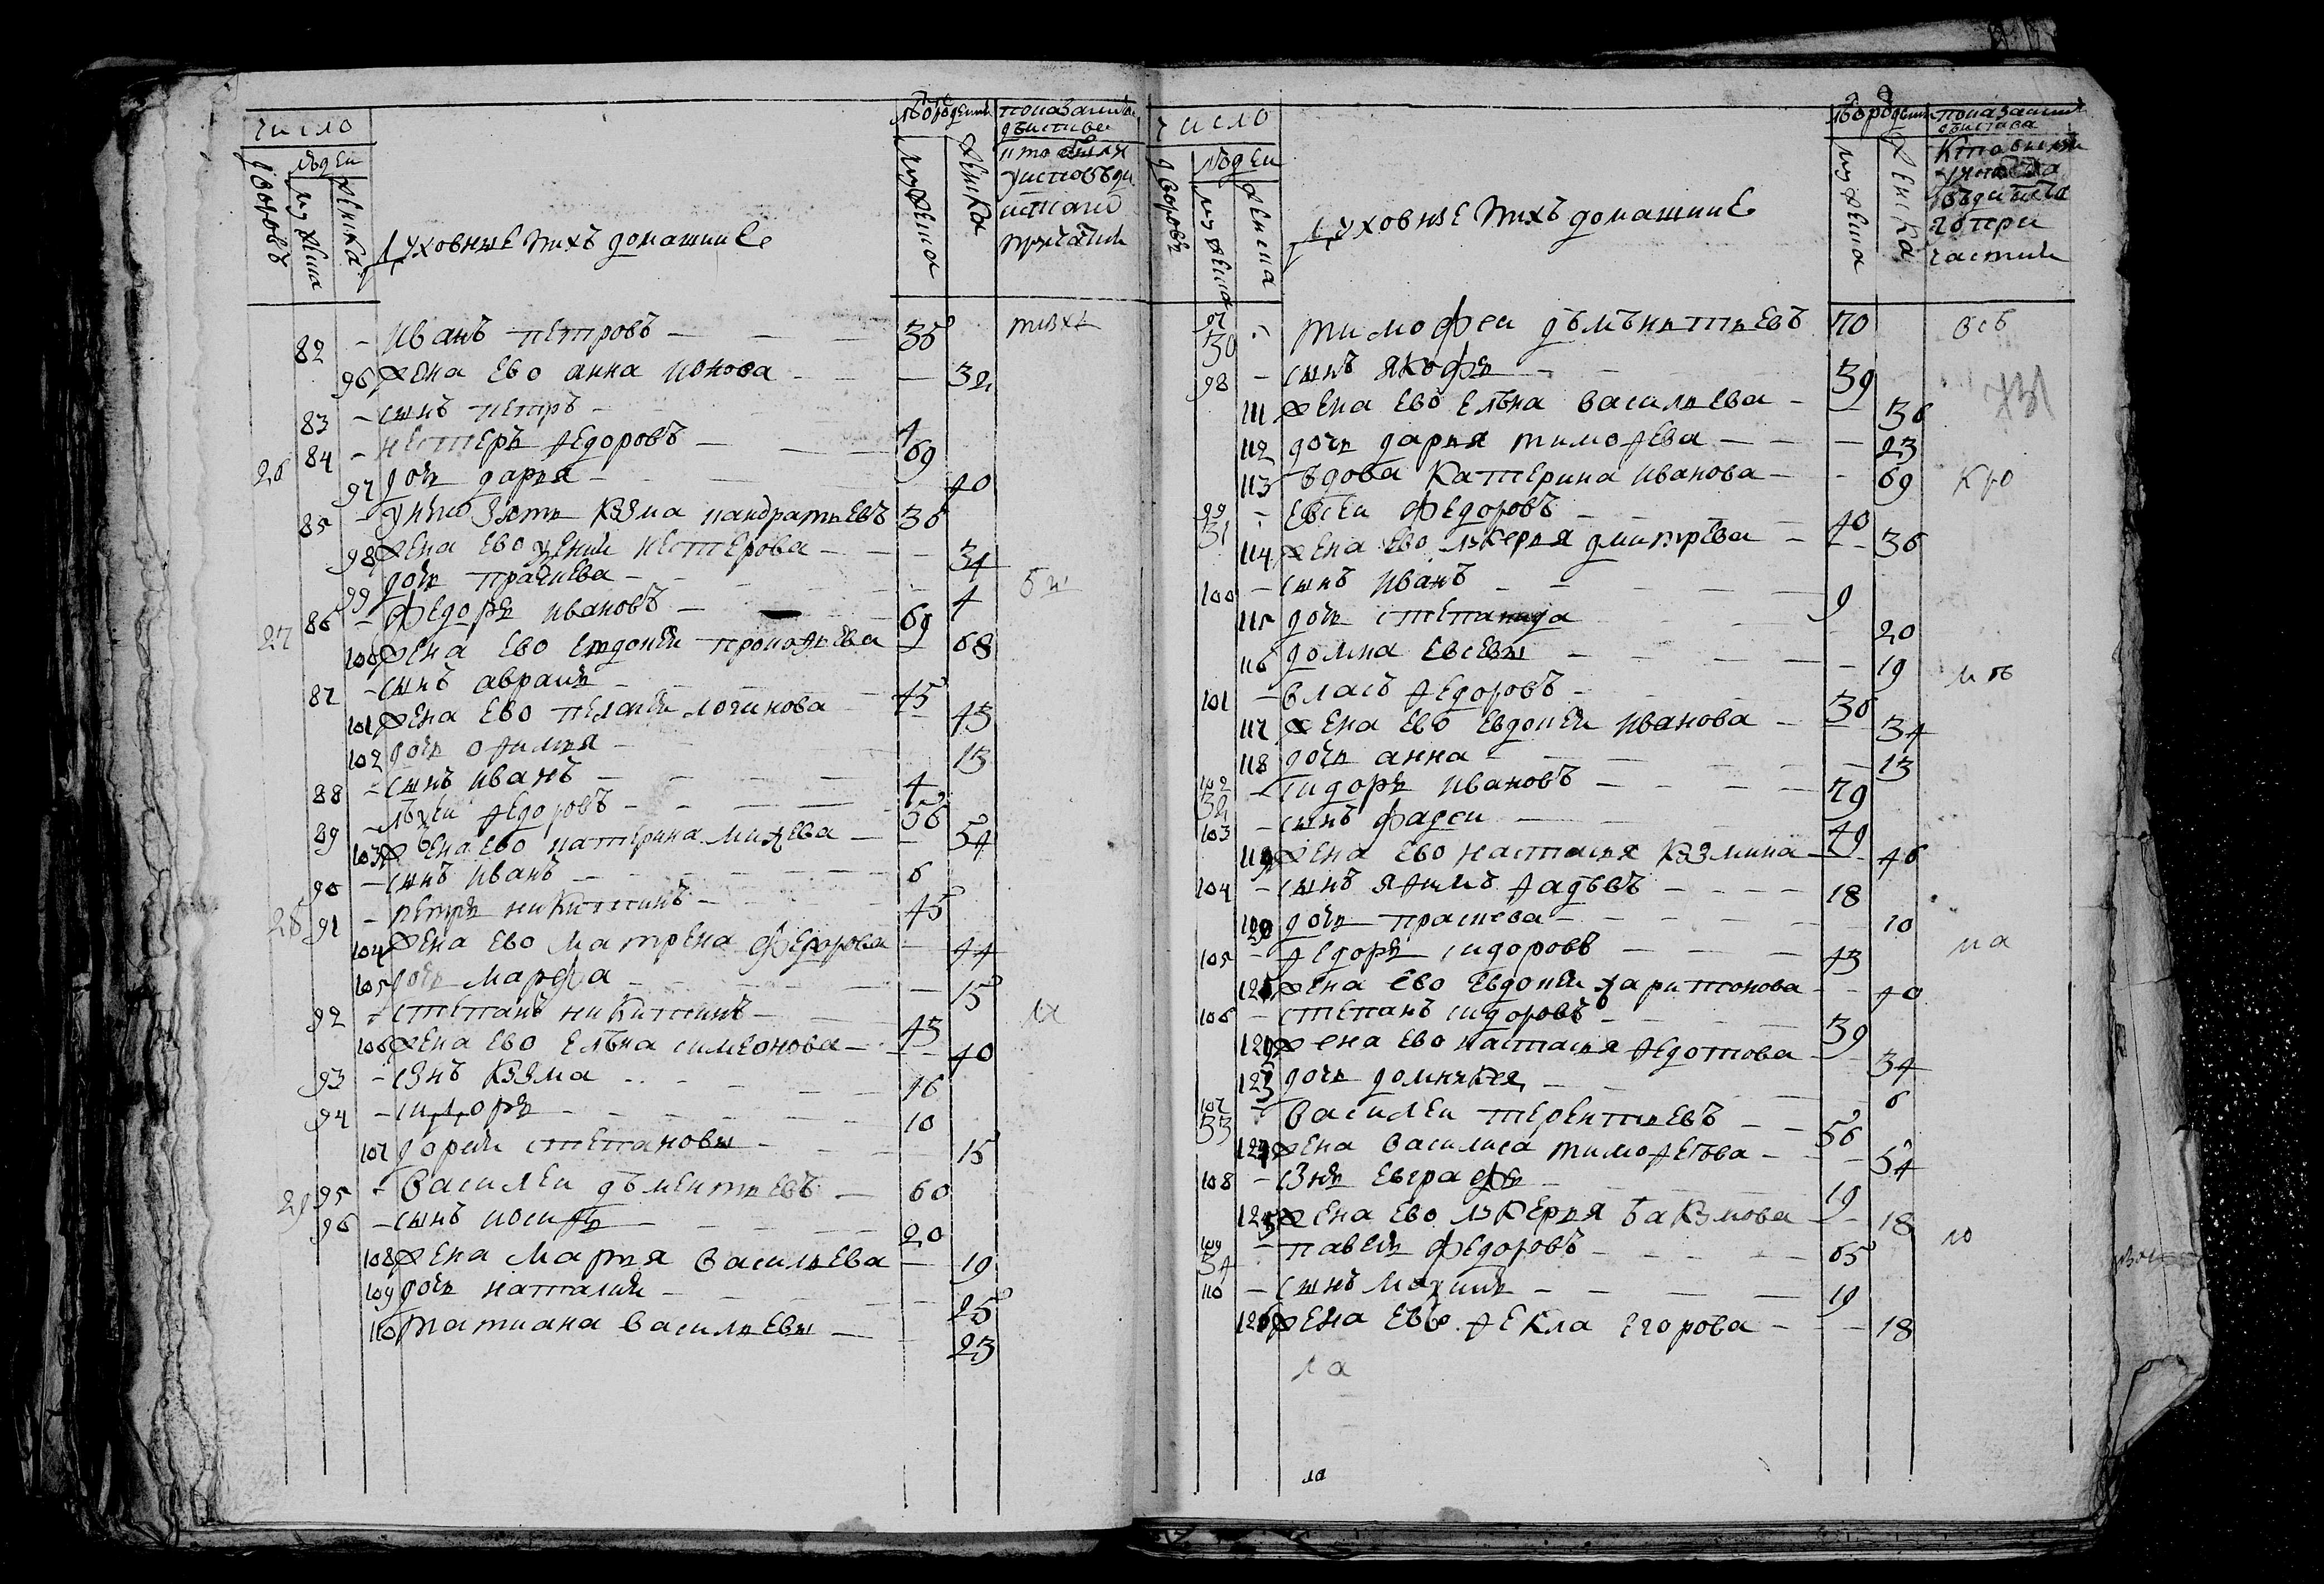 число
людеи
дворовъ
мужеска
женска
Духовныѣ ихъ домашниѣ
лѣто рождения
мужеска
женска
показание
дѣиства
кто былъ
у исповѣди
82 - Иванъ петровъ - 35
96 жена Ево анна ионова - 32
83 - сынъ петръ - 4
26 84 - нестеръ Ѳедоровъ - 69
97 дочь дарья - 40
85 - у нево Зять Козма кандратьевъ 36
98 жена Ево нестерова - 34
99 дочь - 4
27 86 - Федоръ ивановъ - 69
100 жена Ево Евдокия прокоѳьева - 68
87 - сынъ аврамъ - 45
101 жена Ево пелагия логинова - 43
102 дочь оѳимья - 13
88 - сынъ иванъ - 4
89 - Ѳедоровъ - 56
103 жена Ево катерина михеева - 54
90 - сынъ иванъ - 6
28 91 - петръ никитинъ - 45
104 жена Ево матрена Федорова - 44
105 дочь марфа - 15
92 - степанъ никитинъ - 43
106 жена Ево Елѣна симеонова - 40
93 - сынъ Козма - 16
94 - сидоръ - 10
107 дарья степановы - 15
29 95 - Василеи дѣментьевъ - 60
96 - сынъ иосиѳъ - 20
108 жена Марья Васильева - 19
109 дочь наталия - 25
110 татиана васильевы - 23
число
людеи
дворовъ
мужеска
женска
Духовныѣ ихъ домашниѣ
лѣто рождения
мужеска
женска
показание
дѣиства
97 30 - тимофеи дѣмѣнтьевъ 70
98 - сынъ якофъ - 39
111 жена Ево Елѣна васильева - 36
112 дочь дарья тимоѳева - 23
113 вдова Катерина иванова - 69
99 31 - Евсеи Федоровъ - 40
114 жена Ево лукерья дмитрева - 36
100 - сынъ иванъ - 9
115 дочь степанида - 20
116 домна Евсевы - 19
101 - власъ Ѳедоровъ - 36
117 жена Ево Евдокия иванова - 34
118 дочь анна - 13
102 32 - сидоръ ивановъ - 79
103 - сынъ фадеи - 49
119 жена Ево настасья Козмина - 46
104 - сынъ яѳимъ Ѳадѣевъ - 18
120 дочь - 10
105 - Ѳедоръ сидоровъ - 43
121 жена Ево Евдокия харитонова - 40
106 - степанъ сидоровъ - 39
122 жена Ево настасья Ѳедотова - 34
123 дочь домникея - 6
107 33 - Василеи терентьевъ - 56
124 жена василиса тимоѳеева - 54
108 - сынъ Евграфъ - 19
125 жена Ево лукерья - 18
109 34 - павелъ Федоровъ - 65
110 - сынъ - 19
126 жена Ево Ѳекла Егорова - 18